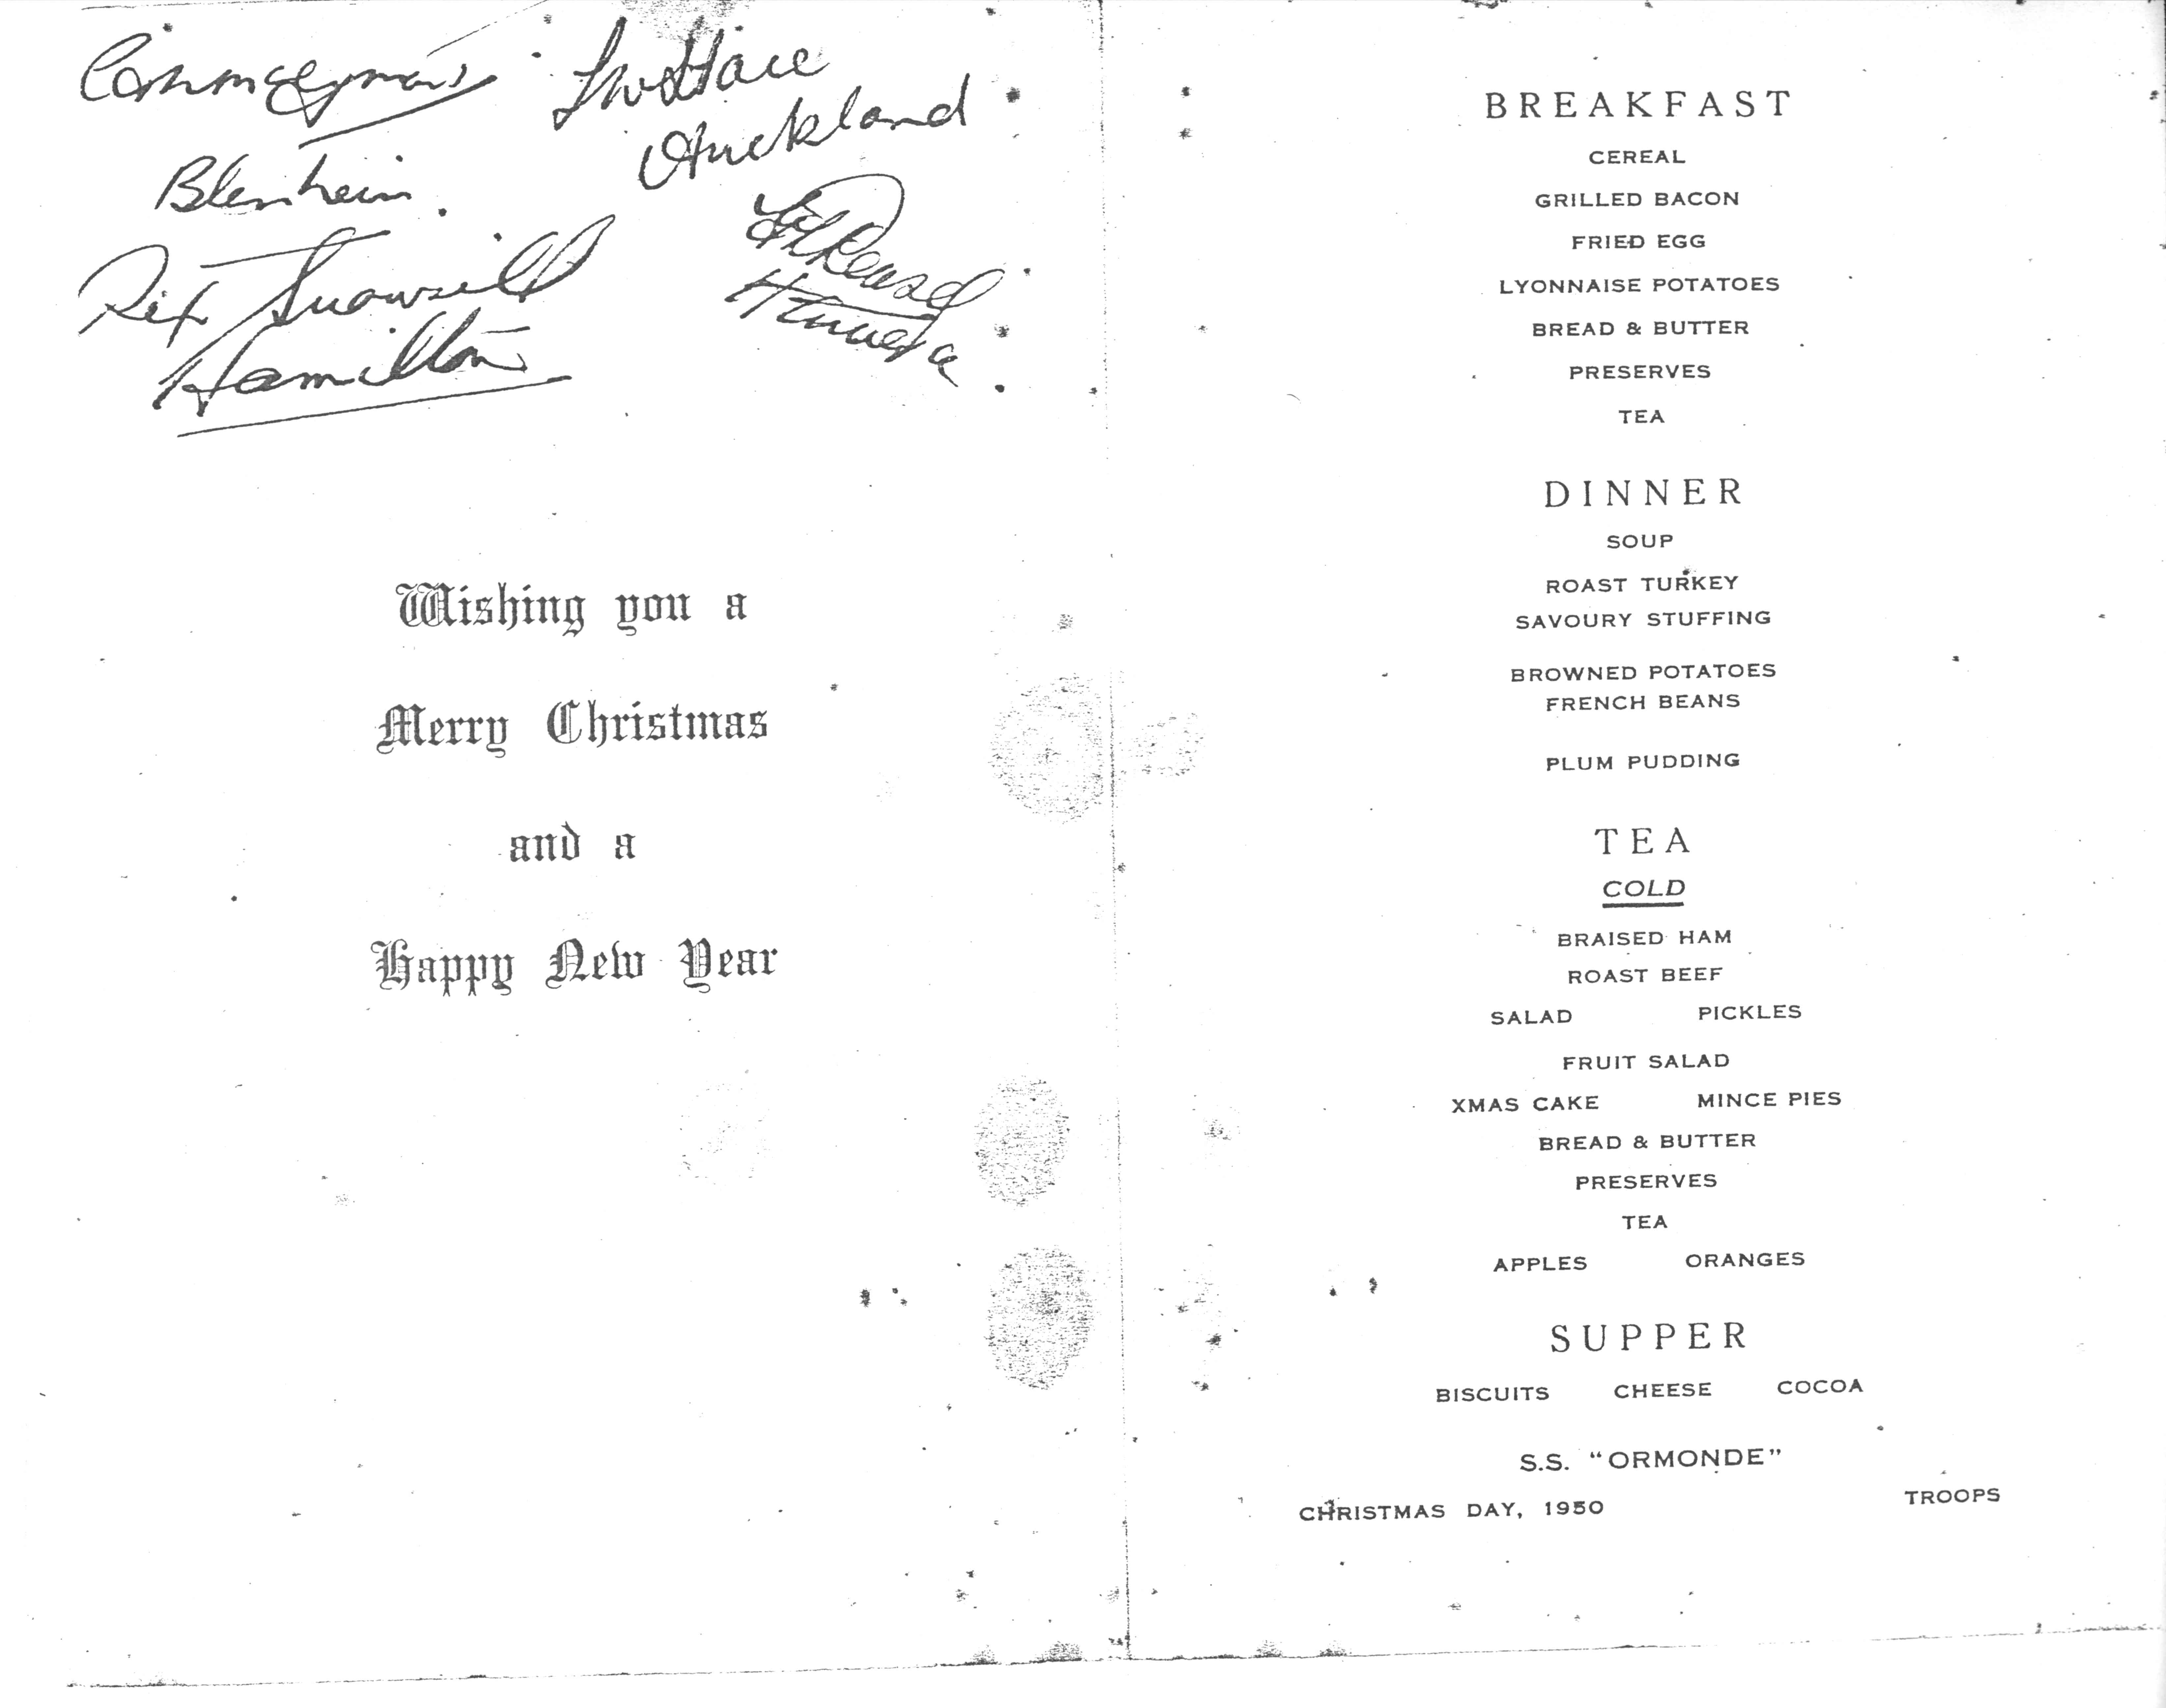 Auckland
Blenheim.
Rex Snowsill
Hamilton
Wishing you a
Merry Christmas
and a
Happy New Year
BREAKFAST
CEREAL
GRILLED BACON
FRIED EGG
LYONNAISE POTATOES
BREAD & BUTTER
PRESERVES
TEA
DINNER
SOUP
ROAST TURKEY
SAVOURY STUFFING
BROWNED POTATOES
FRENCH BEANS
PLUM PUDDING
TEA
COLD
BRAISED HAM
ROAST BEEF
SALAD PICKLES
FRUIT SALAD
XMAS CAKE MINCE PIES
BREAD & BUTTER
PRESERVES
TEA
APPLES ORANGES
SUPPER
BISCUITS CHEESE COCOA
S.S. "ORMONDE"
CHRISTMAS DAY, 1950 TROOPS